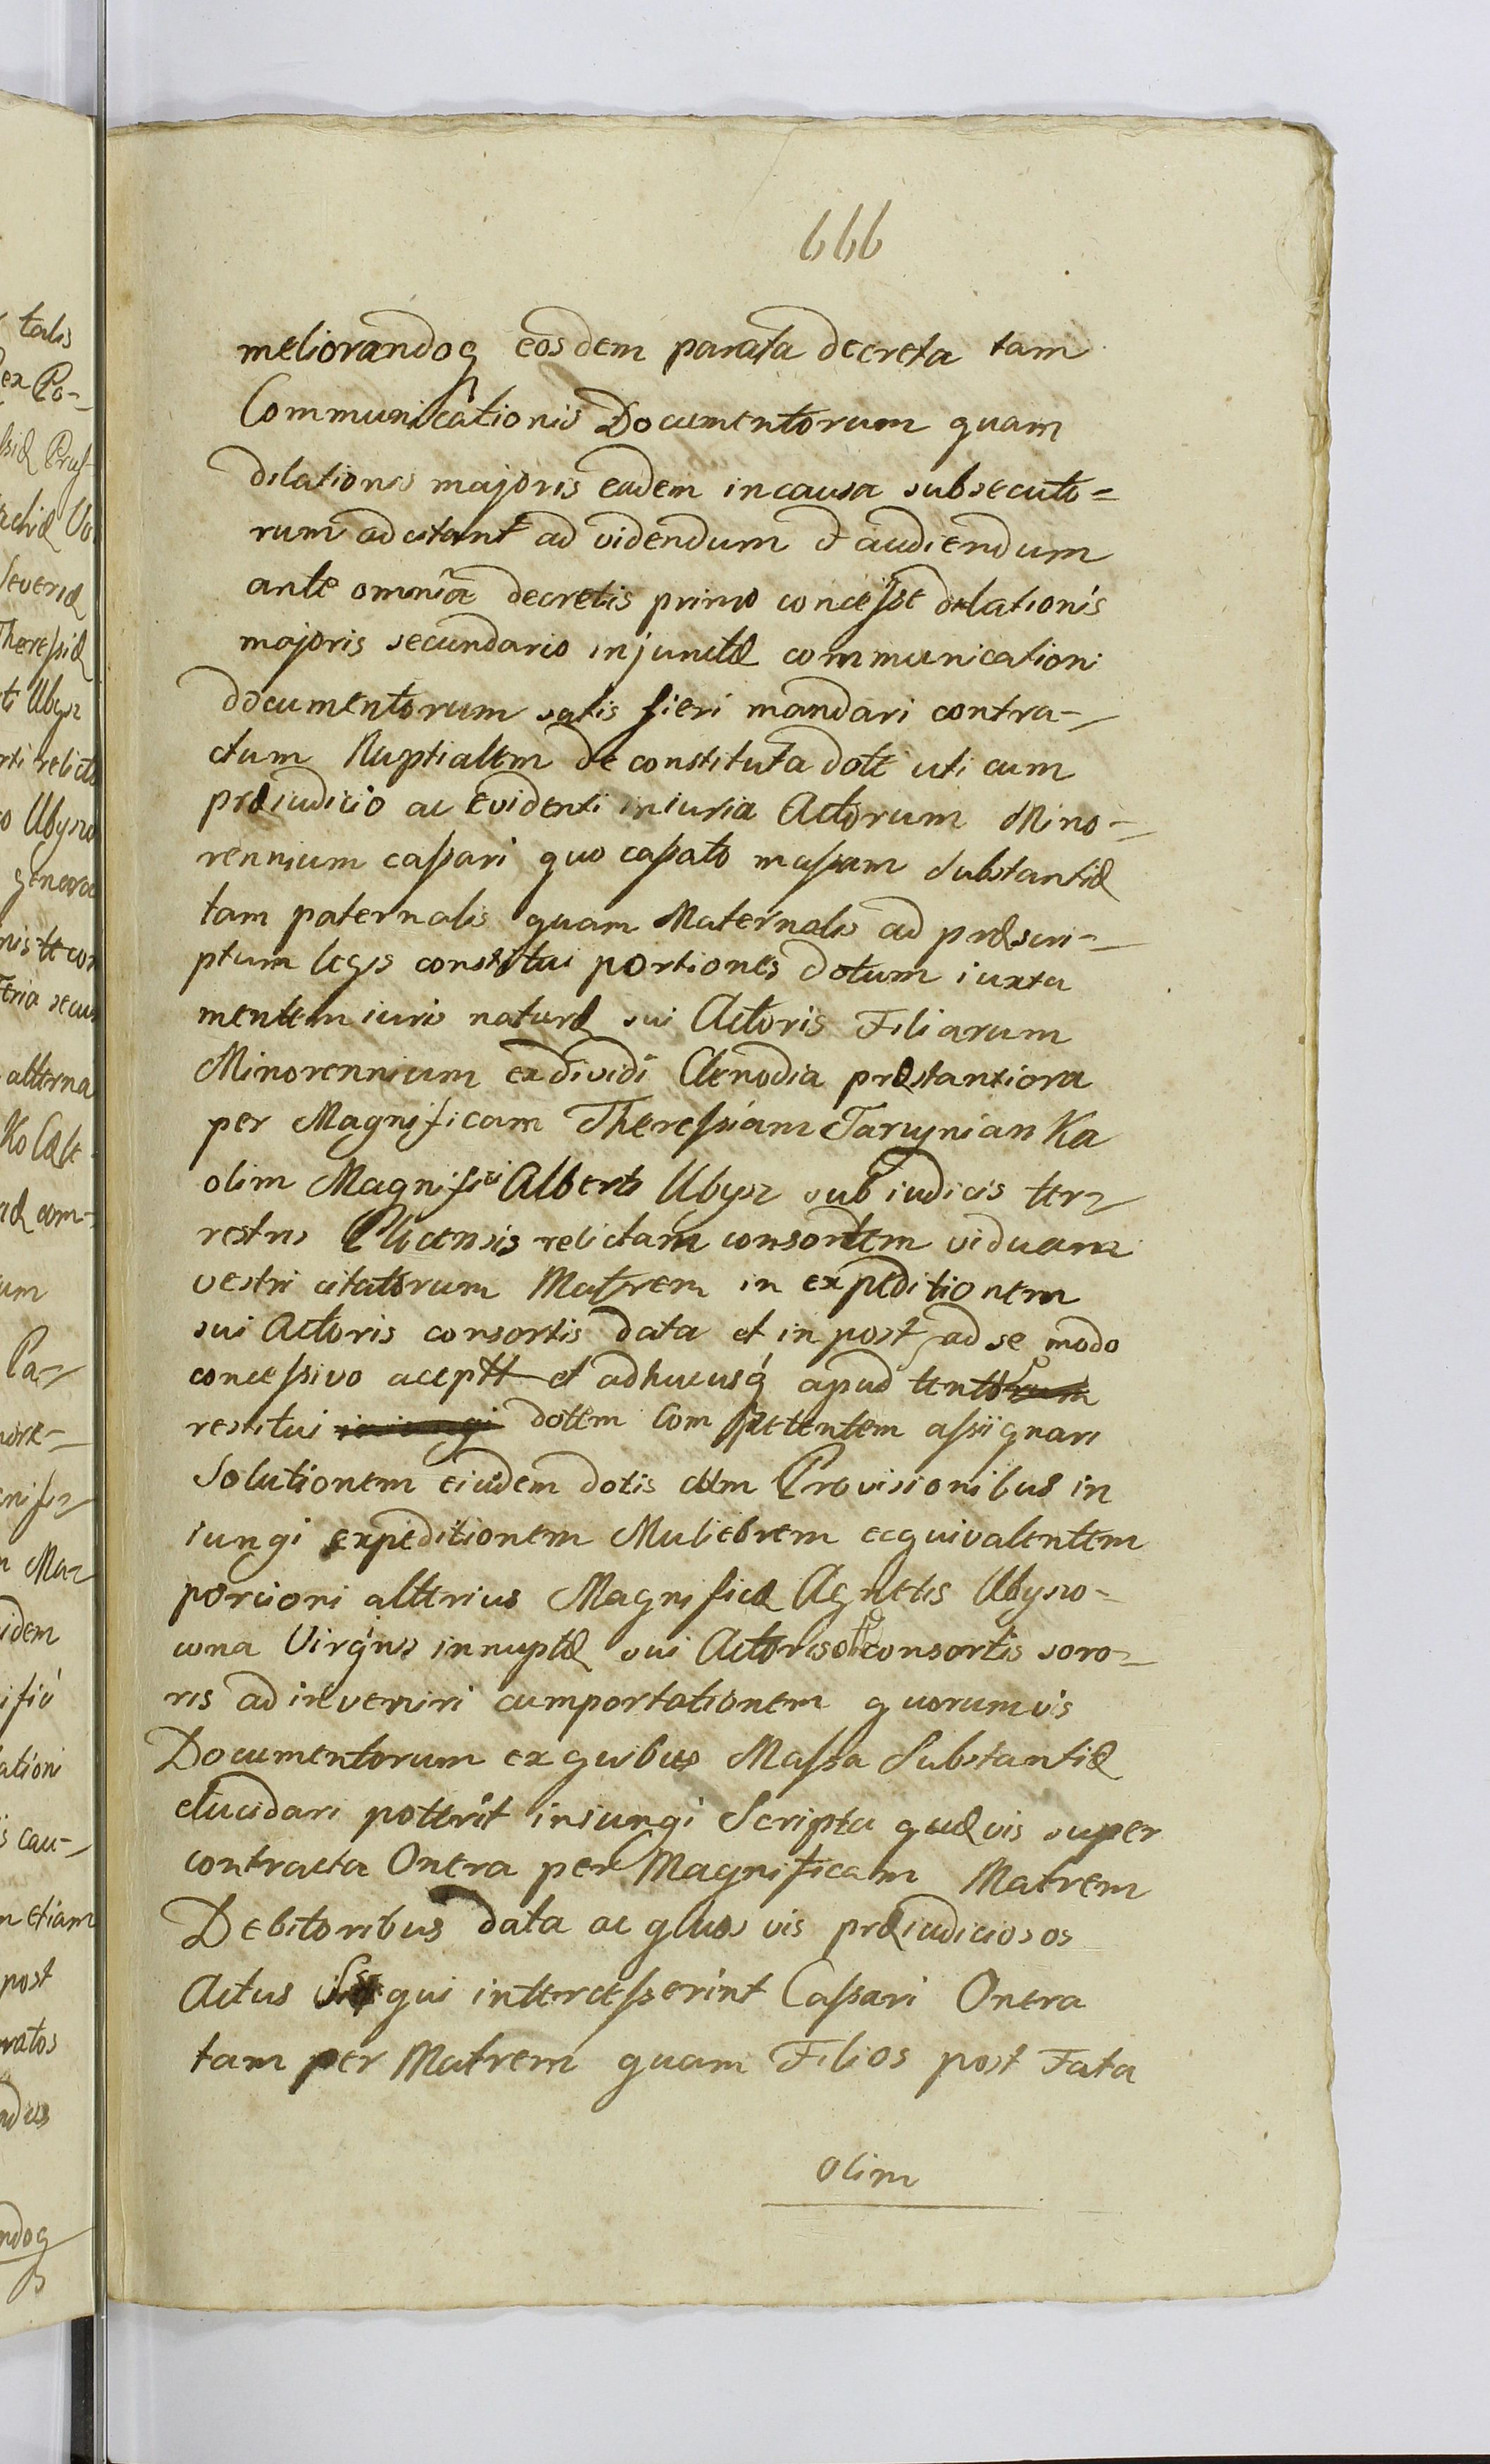 666
talis
meliorandoq eosdem parata decreta tam
Communicationis Documentorum quam
dilationis majoris eadem in causa subsecuto=
rum adcitant ad videndum & audiendum
ante omnia decretis primo concessæ dilationis
majoris secundario injunctæ communicationi
documentorum satis fieri mandari contra-
ctum Nuptialem de constituta dote uti cum
præiudicio ac evidenti iniuria Actorum Mino-
rennium cassari quo cassato massam substantiæ
tam paternalis quam Maternalis ad præscri-
ptum legis constitui portiones dotum iuxta
mentem iuris naturæ sui Actoris Filiarum
Minorennium exdividi Clenodia præstantiora
per Magnificam Theressiam Jarzynian Ka
olim Magnifici Alberti Ubysz sub iudicis ter-
restris relictam consortem viduam
vestri citatorum Matrem in expeditionem
sui Actoris consortis data et in post ad se modo
concessivo acceptt et adhucusq apud tentorum
restitui iniungi dotem Competentem assignari
Solutionem eiusdem dotis cum Provisionibus in
iungi expeditionem Muliebrem ecquivalentem
porcioni alterius Magnificæ Agnetis Ubyszo-
wna Virginis innuptæ sui Actoris consortis soro-
ris adinveniri cumportationem quorumvis
Documentorum ex quibus Massa Substantiæ
elucidari potterit iniungi Scripta quævis super
contracta Onera per Magnificam Matrem
Debitoribus data ac quos vis præiudiciosos
Actus qui intercesserint Cassari Onera
tam per Matrem quam Filios post Fata
olim